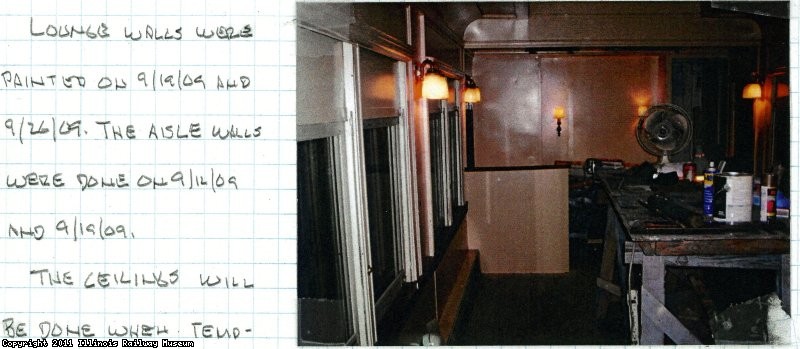 LOUNGE WALLS WERE
PAINTED ON 9/19/09 AND
9/26/09. THE AISLE WALLS
WERE DONE ON 9/12/09
AND 9/19/09.
THE CEILINGS WILL
BE DONE WHEN TEMP-
Copyright 2011 Illinois Railway Museum